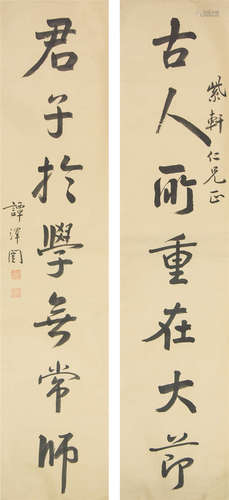 古人所重在大節
紫軒仁兄正
君子於學無常師
譚澤闓